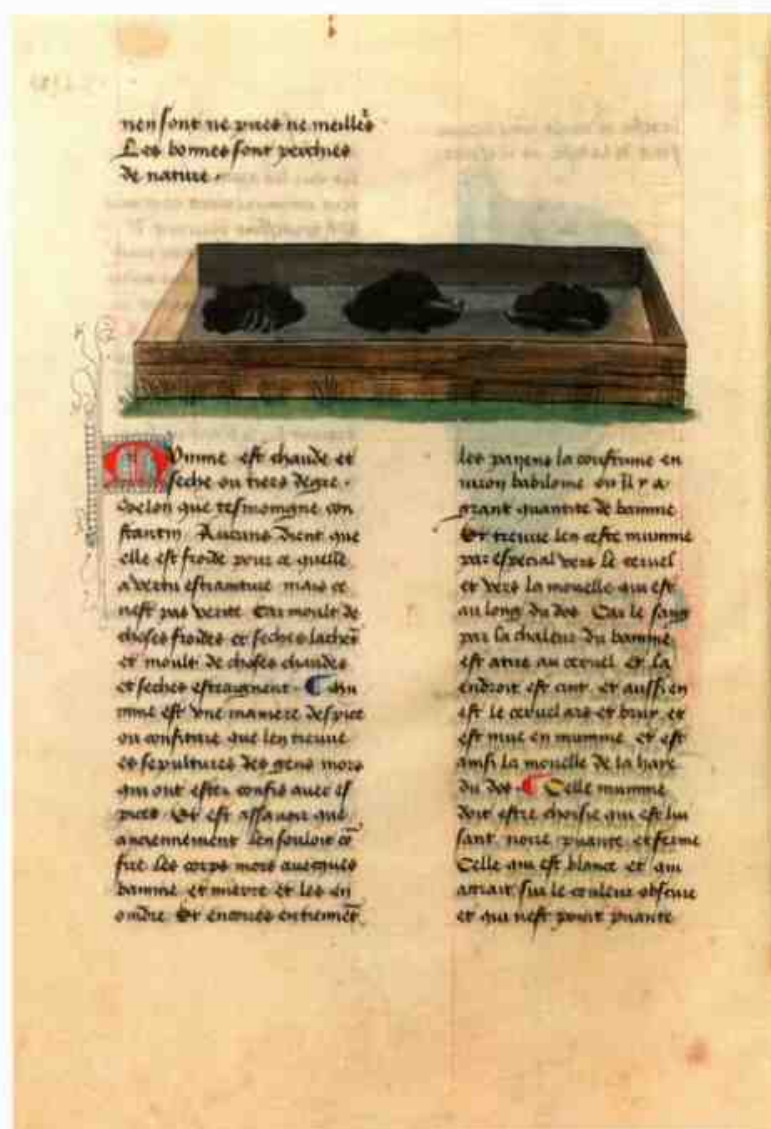 nen sont ne pires ne meille's
Les bonnes sont perchies
de nature.
Mumme est chaude et
seche ou tiers degre.
Selon que tesmoingne con
stantin Aucuns dient que
elle est froide pour ce quelle
a vertu estraintiue mais ce
nest pas verite Car moult de
choses froides et seches laschēt
et moult de choses chaudes
et seches estraignent. Mu
mme est vne maniere despice
ou confiture que len treuue
es sepultures des gens mors
qui ont estez confis auec es
pices Et est assauoir que
anciennement len souloit cō
fire les corps mors auecques
bamme et mierre et les en
oindre Et encores entiennēt
les payens la coustume en
uiron babilonie ou il y a
grant quantite de bamme
Et treuue len ceste mumme
par especial vers le ceruel
et vers la mouelle qui est
au long du dos Car le sang
par la chaleur du bamme
est atire au ceruel et la
endroit est cuit et aussi en
est le ceruel ars et bruy et
est mue en mumme et est
ainsi la mouelle de la haye
du dos. Celle mumme
doit estre choisie qui est lui
sant noire puante et ferme
Celle qui est blance et qui
attrait sur le couleur obscure
et qui nest point puante